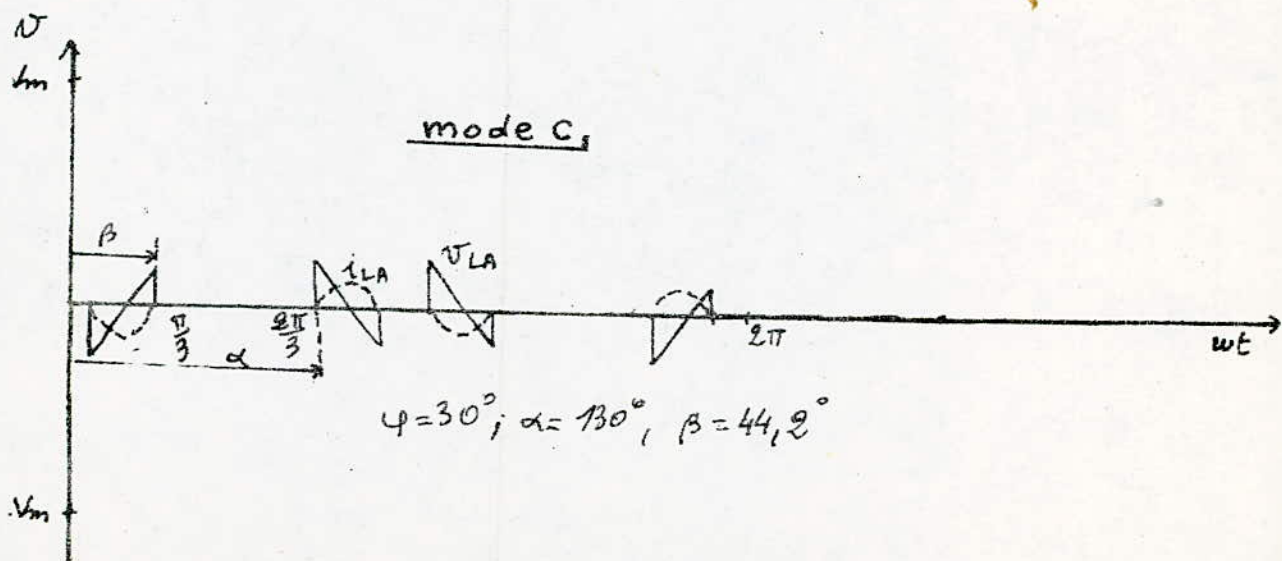 v
Vm
mode C,
β
iLA
vLA
π/3
2π/3
2π
ωt
α
φ=30°; α=130°, β=44,2°
Vm